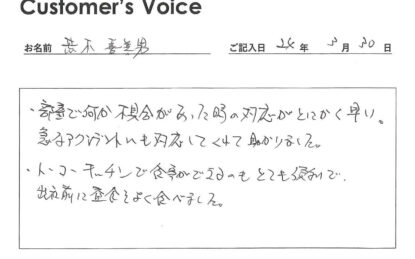 Customer's Voice
お名前 木 喜美男 ご記入日 24年 3月 30日
・部屋で何か不具合があった時の対応がとにかく早い。
急なアクシデントにも対応してくれて助かりました。
・トーコーキッチンで食事ができるのもとても便利で、
出社前に昼食をよく食べました。